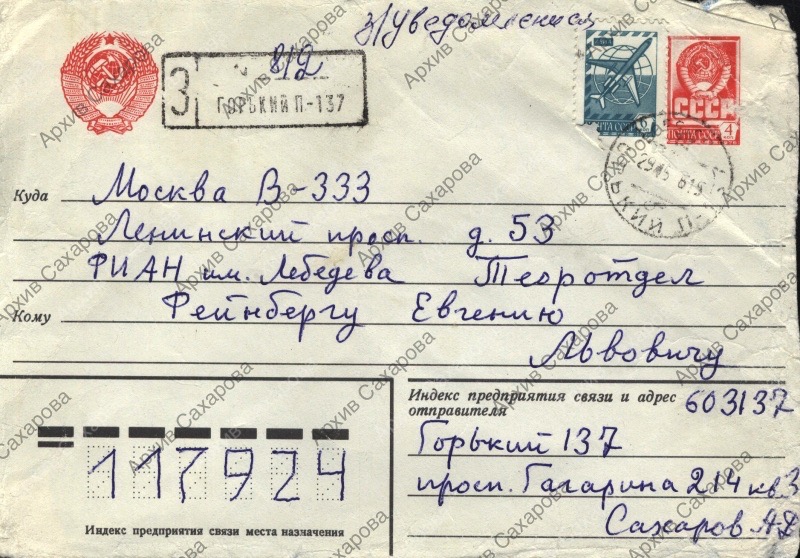 з/Уведомлением
З
№ 8/2
ГОРЬКИЙ П-137
6
ПОЧТА СССР
СССР
ПОЧТА СССР 4
Куда Москва В-333
Ленинский просп. д. 53
ФИАН им. Лебедева Теоротдел
Кому Фейнбергу Евгению
Львовичу
Индекс предприятия связи и адрес
отправителя 603137
Горький 137
просп. Гагарина 214 кв 3
Сахаров А.Д.
117924
Индекс предприятия связи места назначения
Архив Сахарова